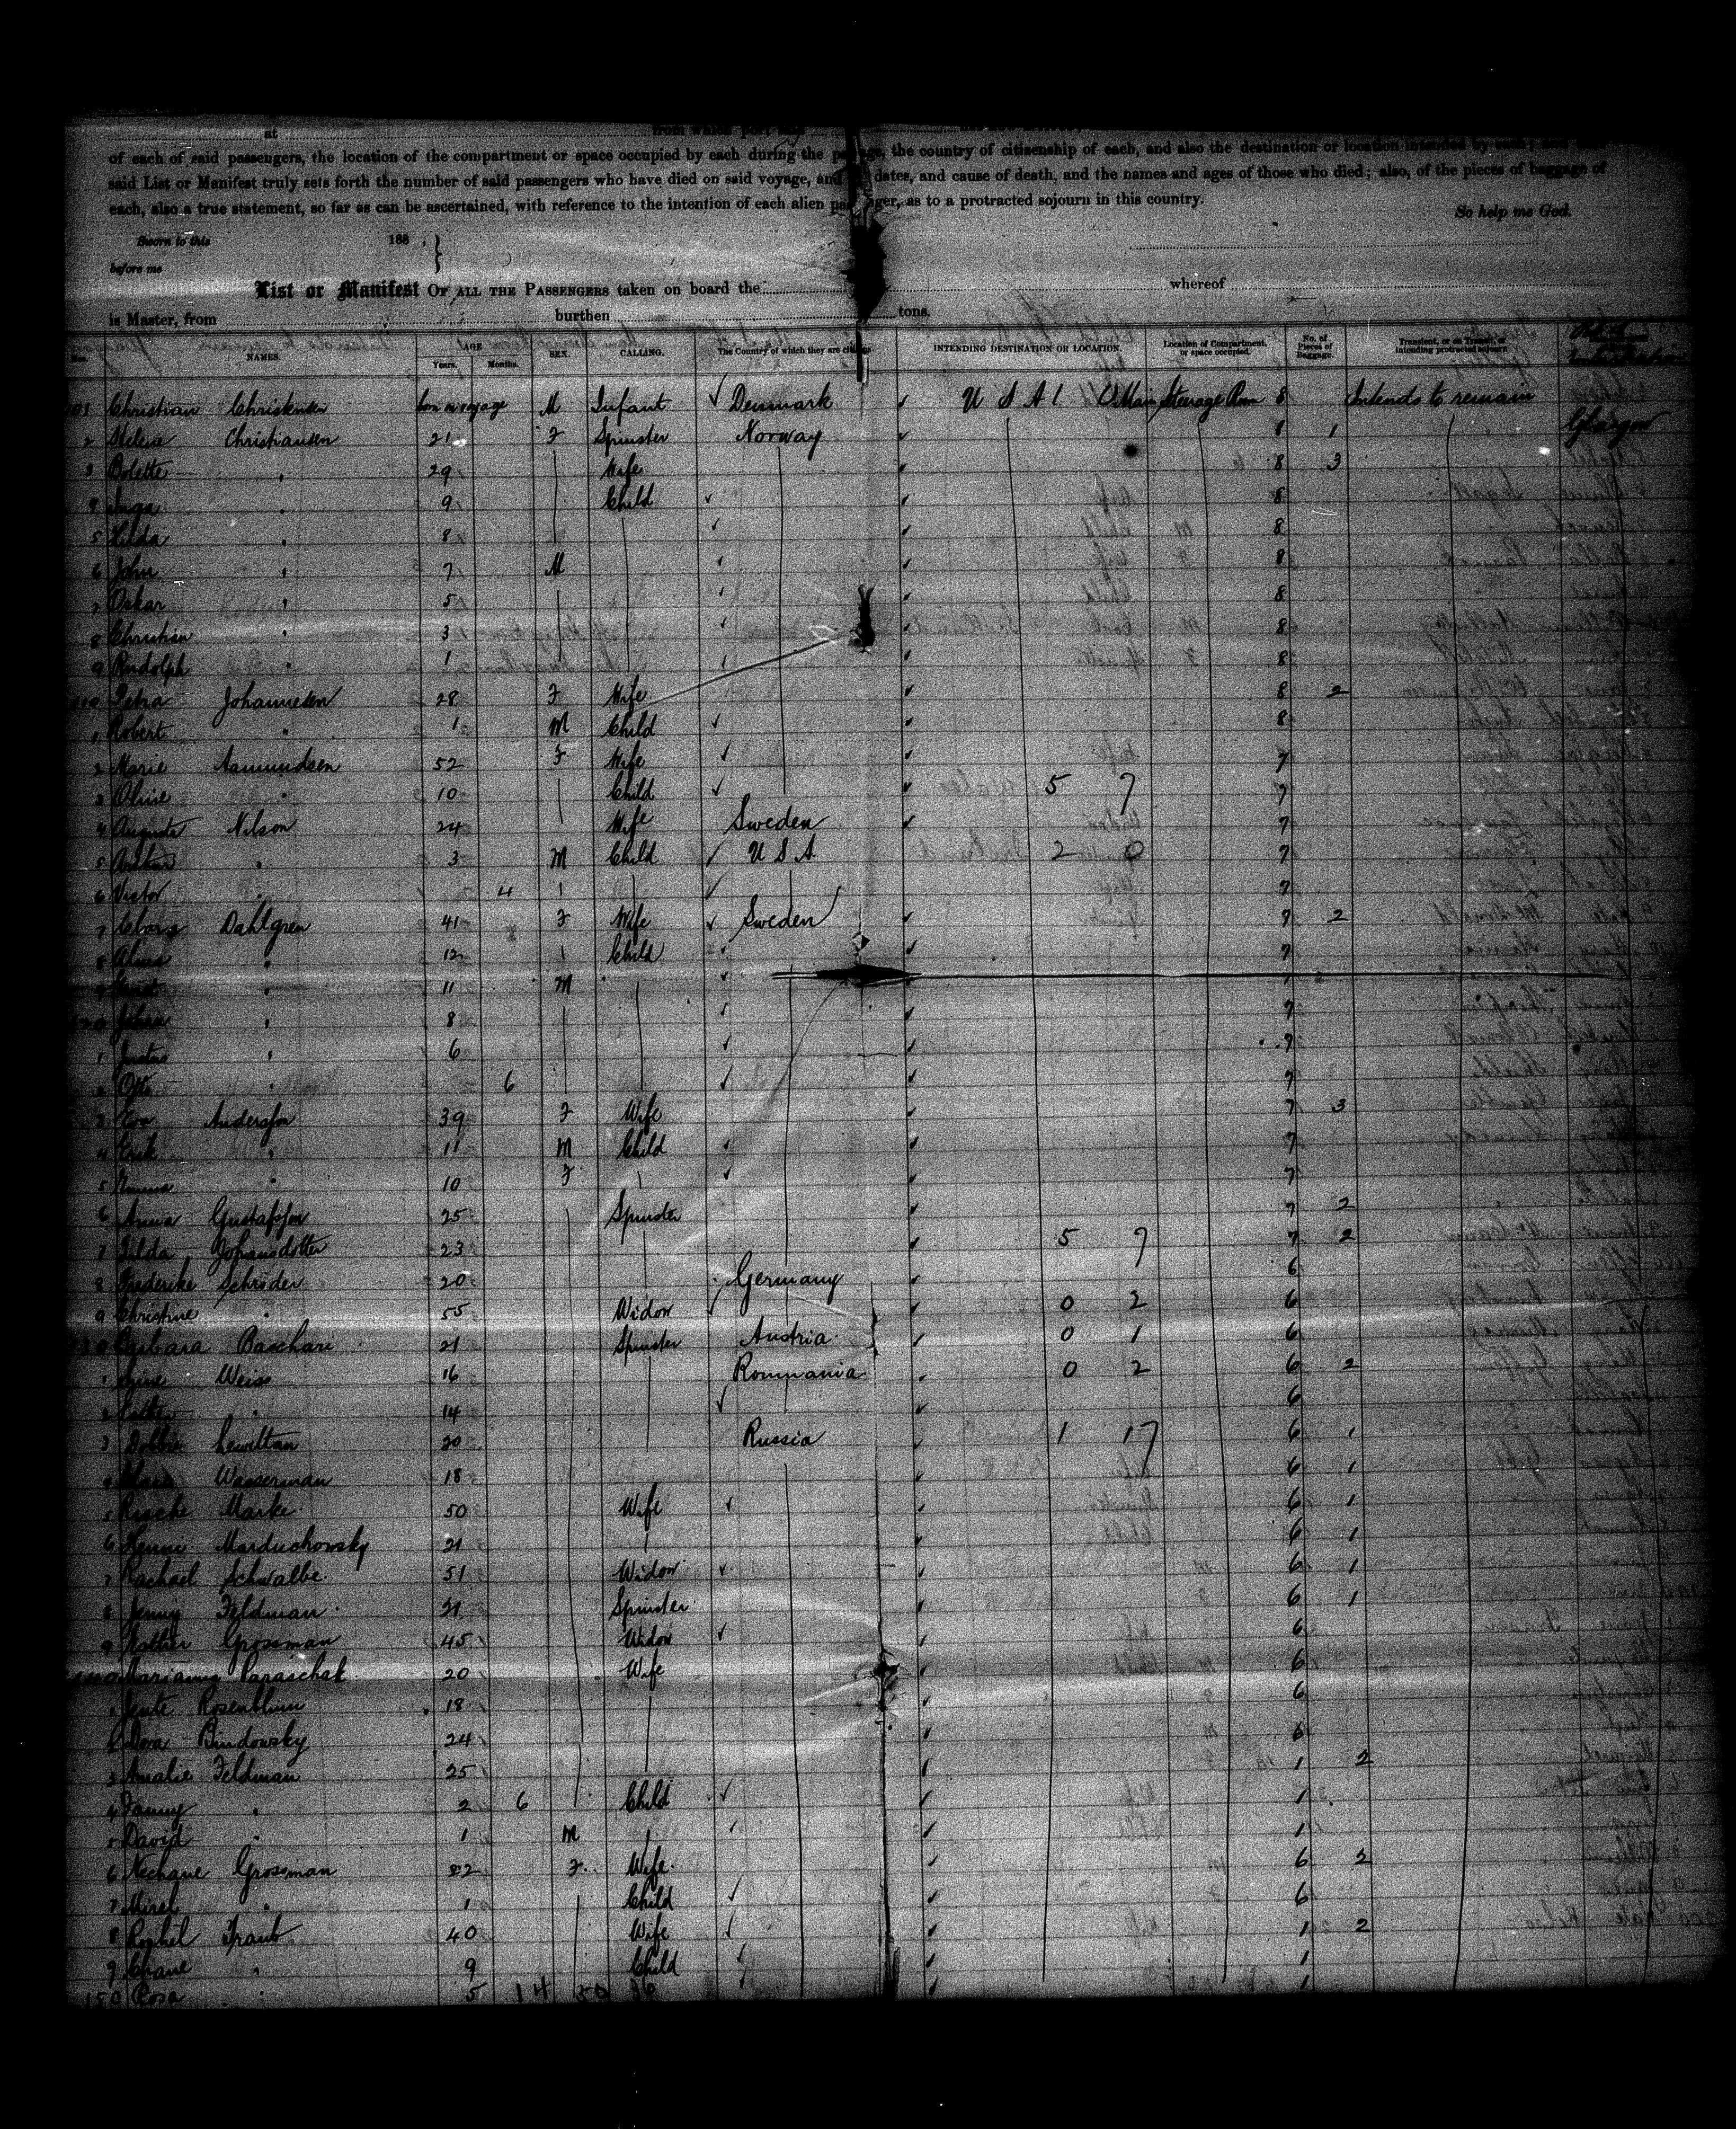 at from which port
of each of said passengers, the location of the compartment or space occupied by each during the passage, the country of citizenship of each, and also the destination or location intended by
said List or Manifest truly sets forth the number of said passengers who have died on said voyage, and dates, and cause of death, and the names and ages of those who died; also, of the pieces of baggage of
each, also a true statement, so far as can be ascertained, with reference to the intention of each alien passenger, as to a protracted sojourn in this country.
So help me God.
Sworn to this 188 .
before me
List or Manifest OF ALL THE PASSENGERS taken on board the whereof
is Master, from burthen tons.
NAMES. AGE Years. Months. SEX. CALLING. The Country of which they are citizens. INTENDING DESTINATION OR LOCATION. Location of Compartment, or space occupied. No. of Pieces of Baggage. Transient, or in Transit, or intending protracted sojourn.
Christian Christensen born on voyage M Infant Denmark U S A Main Steerage Room 8 Intends to remain
2 Helene Christiansen 21 F Spinster Norway 8 1 Glasgow
3 Bolette " 29 Wife 8 3
4 Inga " 9 Child 8
5 Hilda " 8 8
6 John " 7 M 8
7 Oskar " 5 8
8 Christian " 3 8
9 Rudolph " 1 8
110 Petra Johannesen 28 F Wife 8 2
1 Robert " 1 M Child 8
2 Marie Aamundsen 52 F Wife 7
3 Oline " 10 Child 5 7 7
4 Augusta Nilson 24 Wife Sweden 7
5 Arthur " 3 M Child U S A 2 0 7
6 Victor " 4 7
7 Dahlgren 41 F Wife Sweden 7 2
8 Alma " 12 Child 7
" 11 M
" 8 7
1 Justus " 6 7
2 Otto " 6 7
3 Anderson 39 F Wife 7 3
4 Erik " 11 M Child 7
5 Emma " 10 F 7
6 Anna Gustafsson 25 Spinster 7 2
7 Hilda Johansdotter 23 5 7 7 2
8 Frederike Schröder 20 Germany 6
9 Christine " 55 Widow 0 2 6
130 Barbara Baschari 21 Spinster Austria 0 1 6
1 Weiss 16 Roumania 0 2 6 2
2 " 14 6
3 Dobbie Lewittan 20 Russia 1 17 6 1
4 Wasserman 18 6 1
5 Rasche Marke 50 Wife 6 1
6 Henne Marduchowsky 21 6 1
7 Rachael Schwalbe 51 Widow 6 1
8 Jenny Feldman 21 Spinster 6 1
9 Esther Grossman 45 Widow 6
Marianny Paraschak 20 Wife 6
1 Jente Rosenblum 18 6
2 Dora Bindowsky 24 6
3 Amalie Feldman 25 1 2
4 Fanny " 2 6 Child 1
5 David " 1 M 1
6 Nechane Grossman 22 F Wife 6 2
7 Mirel " 1 Child 6
8 Rophel Traub 40 Wife 1 2
9 Chane " 9 Child 1
150 Rosa " 5 14 1